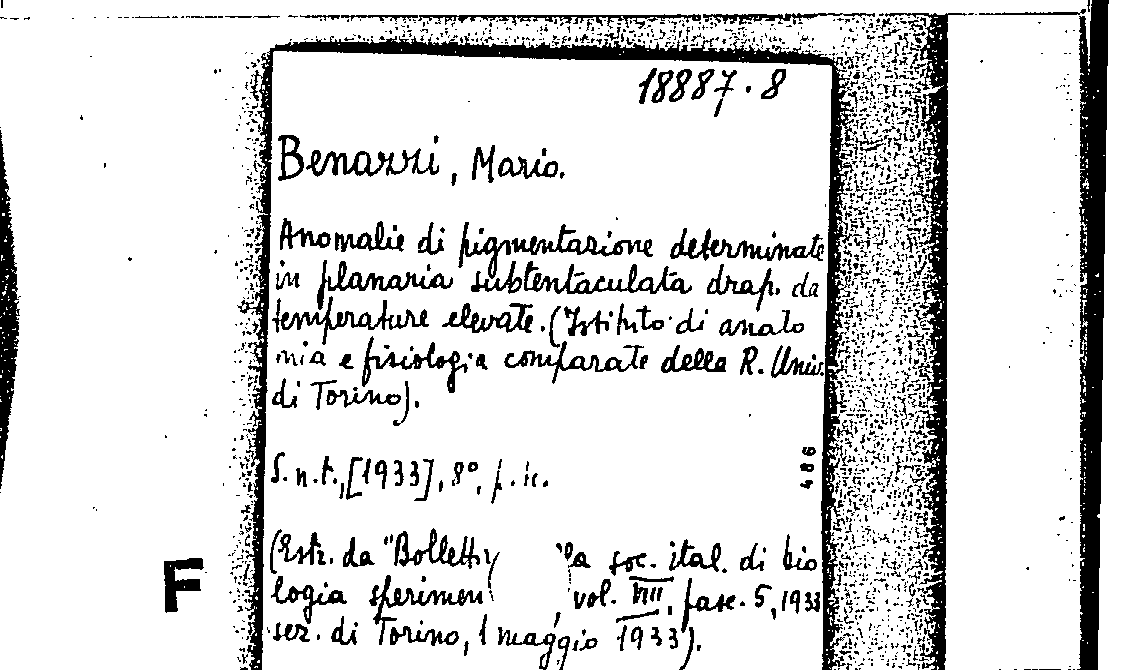 18887.8
Benazzi, Mario.
Anomalie di pigmentazione determinate
in planaria subtentaculata drap. da
temperature elevate. (Istituto di anato
mia e fisiologia comparate della R. Univ.
di Torino).
S.n.t., [1933], 8°, p.
486
(Estr. da "Bollett soc. ital. di bio
logia sperimen vol. VIII, fasc. 5, 1933
sez. di Torino, 1 maggio 1933).
F